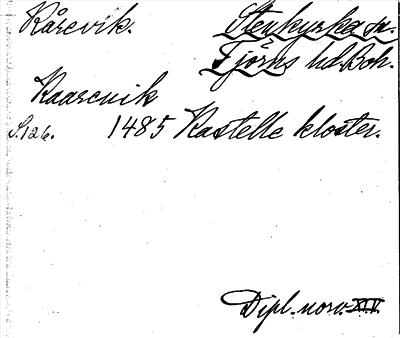 Kårevik. Stenkyrka sn.
Tjörns hd. Boh.
Kaarevik
S. 126. 1485 Kastelle kloster.
Dipl. norv. XIV.